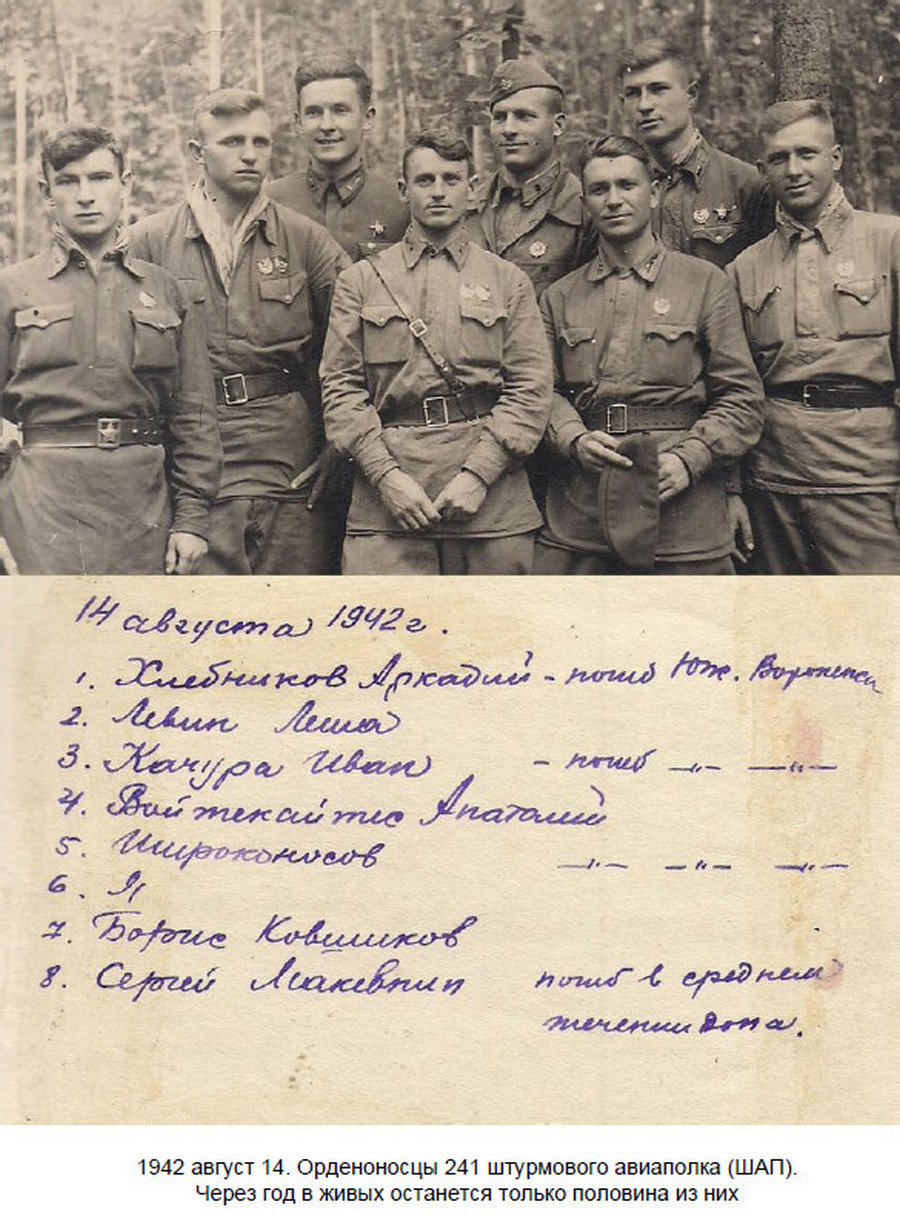 14 августа 1942 г.
1. Хлебников Аркадий - погиб Юж. Воронежа
2. Левин Леша
3. Качура Иван - погиб —"— —"—
4. Войтекайтес Анатолий
5. Широконосов —"— —"— —"—
6. Я
7. Борис Ковшиков
8. Сергей Макевнин погиб в среднем
течении Дона.
1942 август 14. Орденоносцы 241 штурмового авиаполка (ШАП).
Через год в живых останется только половина из них